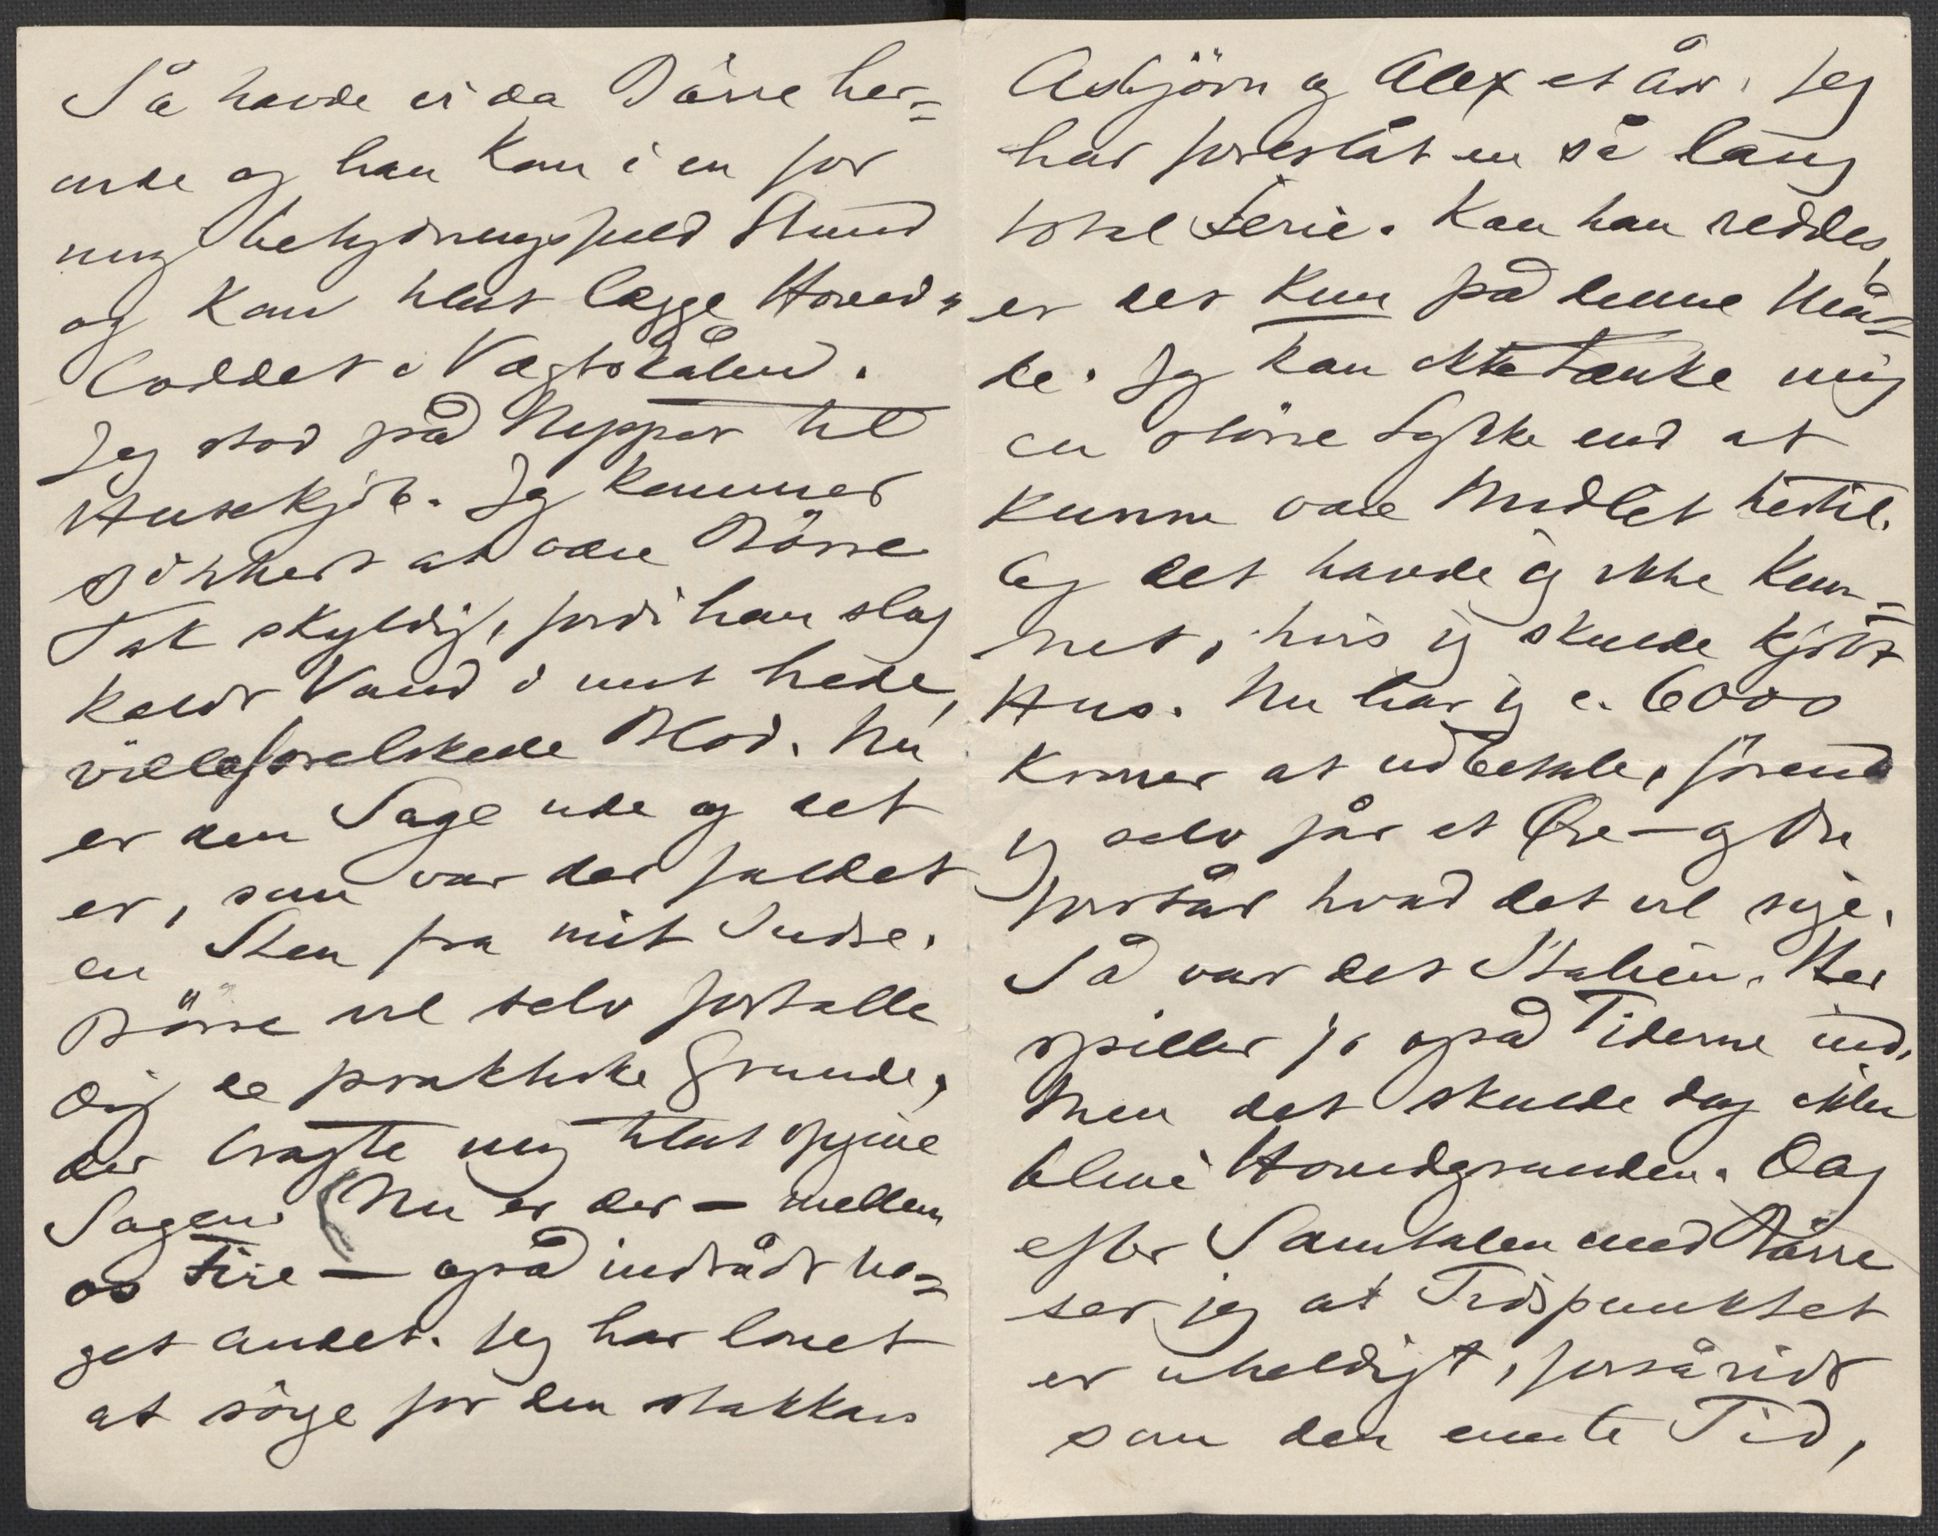 Så havde vi da Börre her=
nede og han kom i en for
mig betydningsfuld Stund
og kom til at lægge Hoved=
loddet i Vægtskålen.
Jeg stod på Nippet til
Huskjöb. Jeg kommer
sikkert at være Börre
Tak skyldig, fordi han slog
koldt Vand i mit hede,
villaforelskede Blod. Nu
er den Sage ude og det
er, som var der faldet
en Sten fra mit Indre.
Börre vil selv fortælle
Dig de praktiske Grunde,
der bragte mig til at opgive
Sagen. (Nu er der — mellem
os Fire — også indtrådt no=
get andet. Jeg har lovet
at sörge for den stakkars
Asbjörn og Alex et år. Jeg
har foreslåt en så lang
total Ferie. Kan han reddes,
er det kun på denne Må=
de. Jeg kan ikke tænke mig
en större Lykke end at
kunne være Midlet hertil.
Og det havde jeg ikke kun=
net, hvis jeg skulde kjöbt
Hus. Nu har jeg c. 6000
Kroner at udbetale, förend
jeg selv får et Øre — og Du
forstår hvad det vil sige.
Så var det Italien. Her
spiller jo også Tiderne ind.
Men det skulde dog ikke
blive Hovedgrunden. Og
efter Samtalen med Börre
ser jeg at Tidspunktet
er uheldigt, forsåvidt
som den eneste Tid,